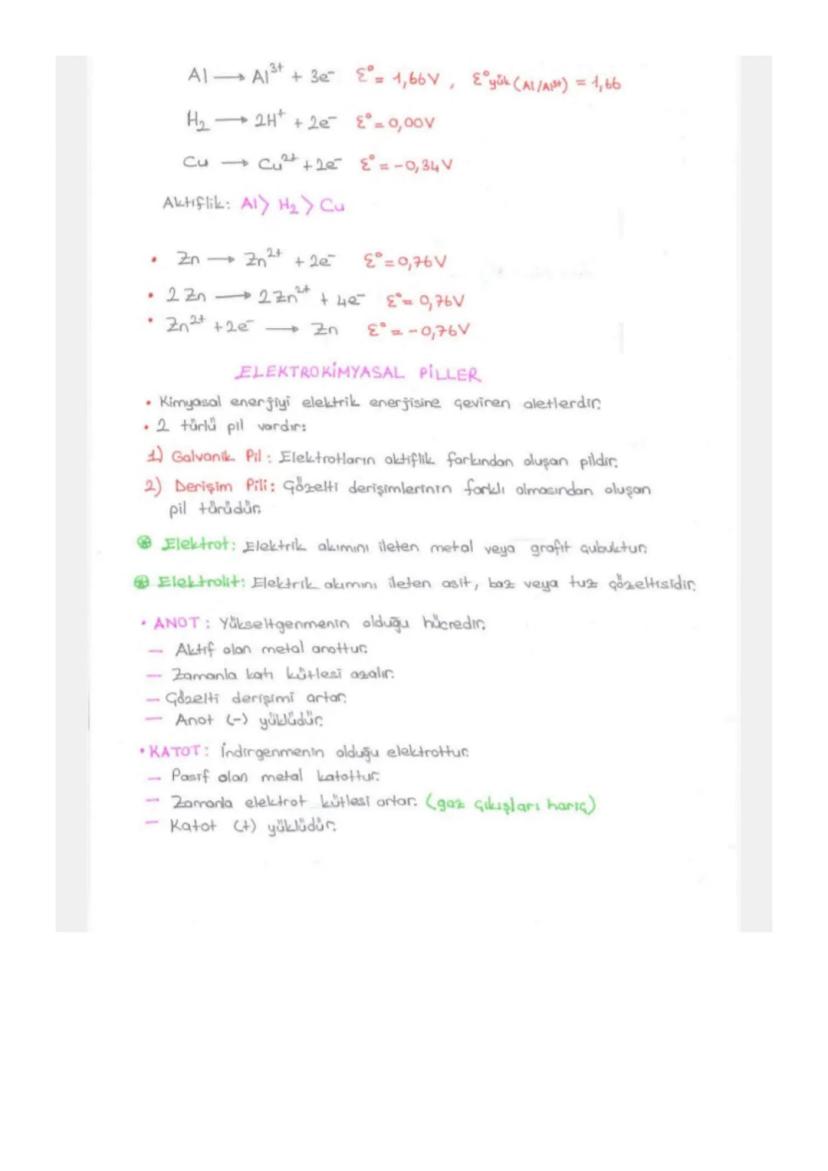 Al → Al³⁺ + 3e⁻ Ɛ° = 1,66V , Ɛ°yük (Al/Al³⁺) = 1,66
H₂ → 2H⁺ + 2e⁻ Ɛ° = 0,00V
Cu → Cu²⁺ + 2e⁻ Ɛ° = -0,34V
Aktiflik: Al > H₂ > Cu
• Zn → Zn²⁺ + 2e⁻ Ɛ° = 0,76V
• 2 Zn → 2 Zn²⁺ + 4e⁻ Ɛ° = 0,76V
• Zn²⁺ + 2e⁻ → Zn Ɛ° = -0,76V
ELEKTROKİMYASAL PİLLER
• Kimyasal enerjiyi elektrik enerjisine çeviren aletlerdir.
• 2 türlü pil vardır:
1) Galvanik Pil : Elektrotların aktiflik farkından oluşan pildir.
2) Derişim Pili : Çözelti derişimlerinin farklı olmasından oluşan
pil türüdür.
Elektrot : Elektrik akımını ileten metal veya grafit çubuktur.
Elektrolit : Elektrik akımını ileten asit, baz veya tuz çözeltisidir.
• ANOT : Yükseltgenmenin olduğu hücredir.
— Aktif olan metal anottur.
— Zamanla katı kütlesi azalır.
— Çözelti derişimi artar.
— Anot (-) yüklüdür.
• KATOT : İndirgenmenin olduğu elektrottur.
— Pasif olan metal katottur.
— Zamanla elektrot kütlesi artar. (gaz çıkışları hariç)
— Katot (+) yüklüdür.